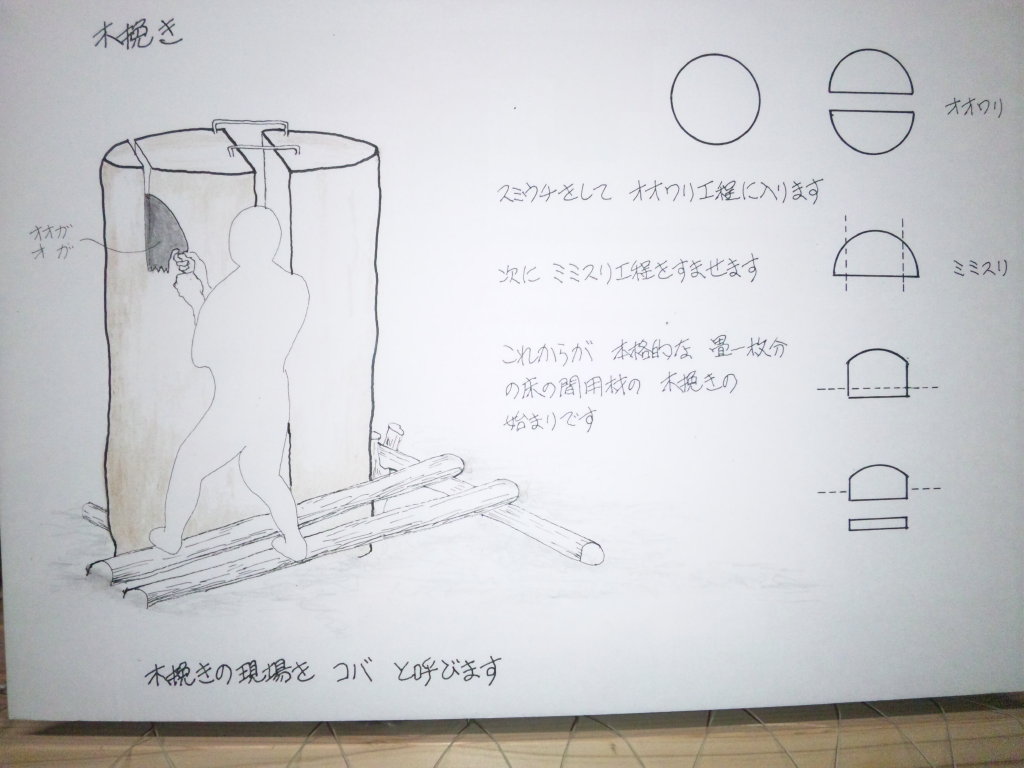 木挽き
オオワリ
スミウチをして オオワリ工程に入ります
オオガ
オガ
次に ミミスリ工程をすませます
ミミスリ
これからが 本格的な 畳一枚分
の床の間用材の 木挽きの
始まりです
木挽きの現場を コバ と呼びます